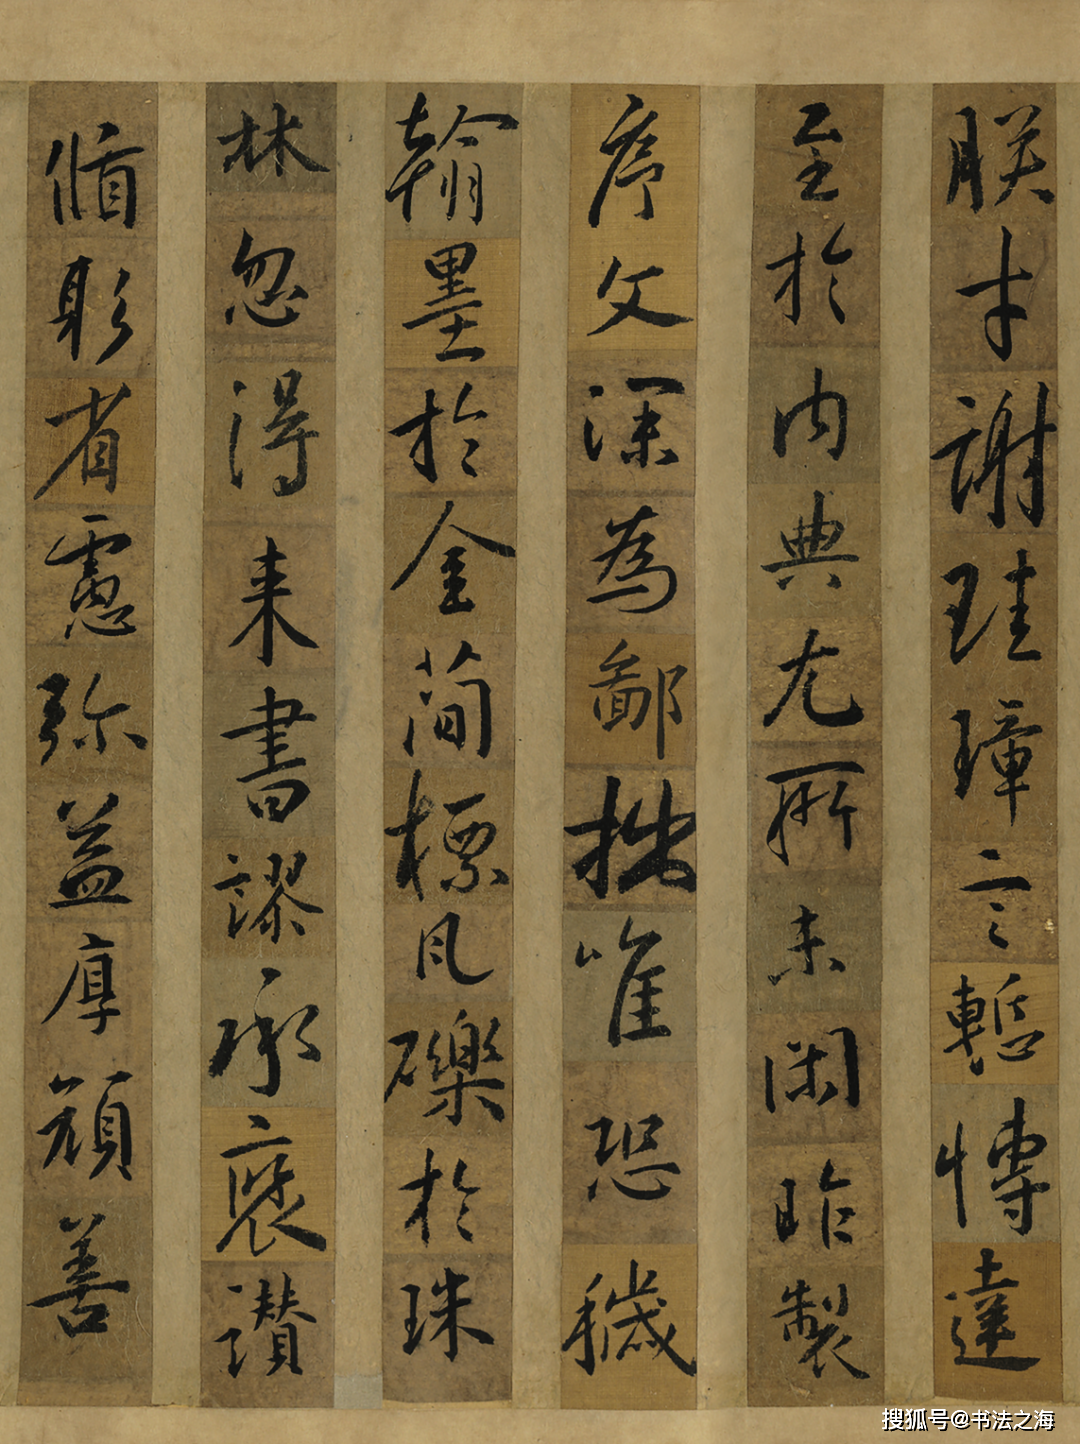 朕才謝珪璋言慙博達
至於内典尤所未閑昨製
序文深為鄙拙唯恐穢
翰墨於金簡標瓦礫於珠
林忽得来書謬承褒讃
循躬省慮弥益厚顔善
搜狐号@书法之海